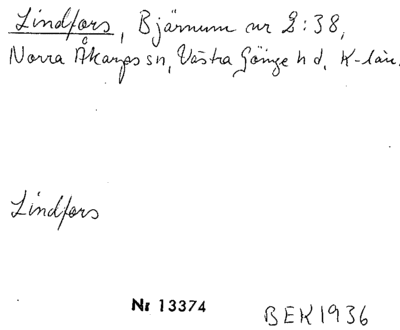 Lindfors, Bjärnum nr 2:38,
Norra Åkarps sn, Västra Göinge hd, K-län.
Lindfors
Nr 13374
BEK1936